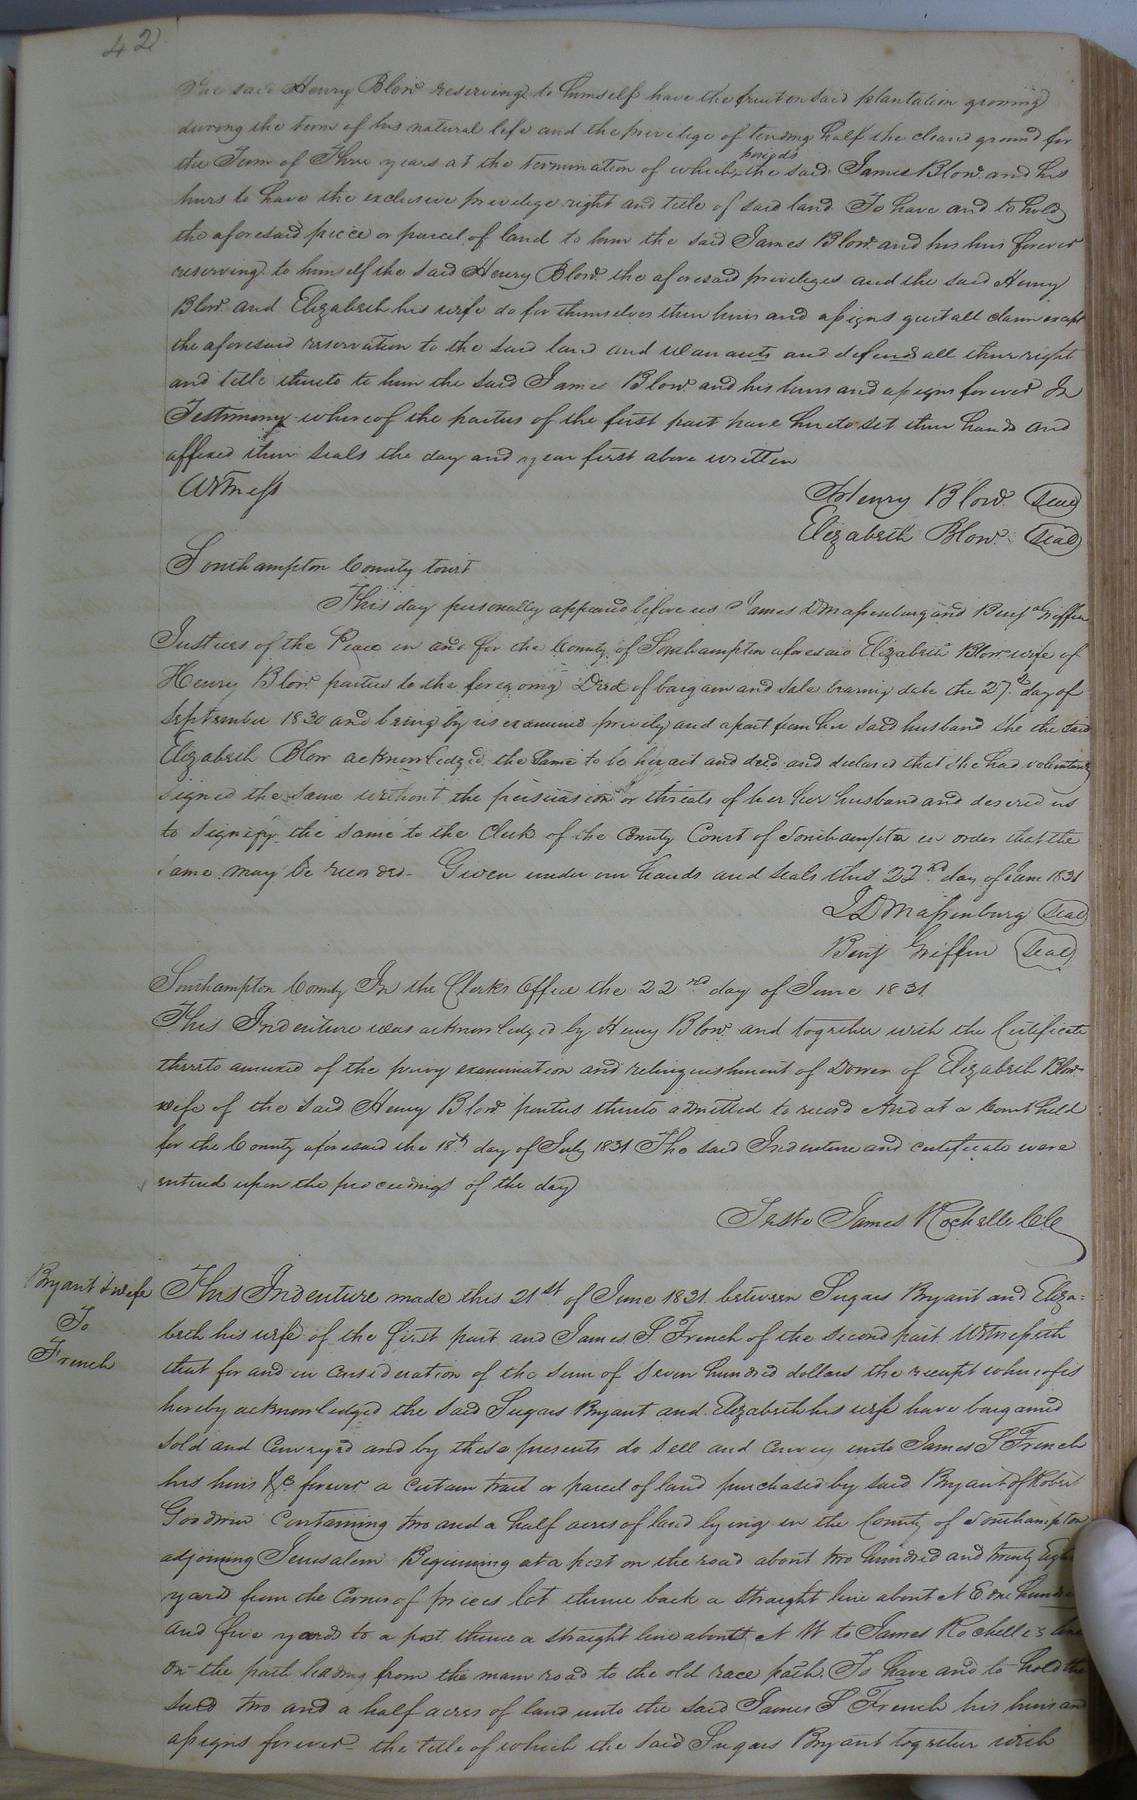 42
The said Henry Blow reserving to himself have the fruit on said plantation growing
during the term of his natural life and the privilege of tending half the cleard ground for
the Term of Three years at the termination of which periods the said James Blow and his
hiers to have the exclusive privilege right and title of said land To have and to hold
the aforesaid piece or parcel of land to him the said James Blow and his hiers forever
reserving to himself the said Henry Blow the aforesaid privileges and the said Henry
Blow and Elizabeth his wife do for themselves their hiers and assigns quit all claim except
the aforesaid reservation to the said land and warrants and defends all their right
and title thereto to him the said James Blow and his hiers and assigns forever In
Testimony whereof the parties of the first part have hereto set their hands and
affixed their seals the day and year first above written
Witness
Henry Blow Seal
Elizabeth Blow Seal
Southampton County towit
This day personally appeared before us James D Massenburg and Benja Griffin
Justices of the Peace in and for the County of Southampton aforesaid Elizabeth Blow wife of
Henry Blow parties to the foregoing Deed of bargain and sale bearing date the 27th day of
September 1830 and being by us examined privily and apart from her said husband she the said
Elizabeth Blow acknowledged the same to be her act and deed and declared that she had voluntarily
signed the same without the persuasion or threats of her her husband and desired us
to signify the same to the Clerk of the County Court of Southampton in order that the
same may be recorded. Given under our hands and seals this 22nd day of June 1831
J D Massenburg Seal
Benj Griffin Seal
Southampton County In the Clerks Office the 22nd day of June 1831
This Indenture was acknowledged by Henry Blow and together with the Certificate
thereto annexed of the privy examination and relinquishment of Dower of Elizabeth Blow
wife of the said Henry Blow parties thereto admitted to record And at a Court held
for the County aforesaid the 18th day of July 1831 The said Indenture and certificate were
entered upon the proceedings of the day
Teste James Rochelle CC
Bryant & wife
To
French
This Indenture made this 21st of June 1831 between Sugars Bryant and Eliza=
beth his wife of the first part and James S French of the second part Witnesseth
that for and in consideration of the sum of seven hundred dollars the receipt whereof is
hereby acknowledged the said Sugars Bryant and Elizabeth his wife have bargained
sold and conveyed and by these presents do sell and convey unto James S French
his hiers &c forever a certain tract or parcel of land purchased by said Bryant of Robert
Goodwin Containing two and a half acres of land lying in the County of Southampton
adjoining Jerusalem Beginning at a post on the road about two hundred and twenty eight
yard from the Corner of prices lot thence back a straight line about N E one hundred
and five yards to a post thence a straight line about N W to James Rochelle's line
on the path leading from the main road to the old race path. To have and to hold the
said two and a half acres of land unto the said James S French his hiers and
assigns forever the title of which the said Sugars Bryant together with